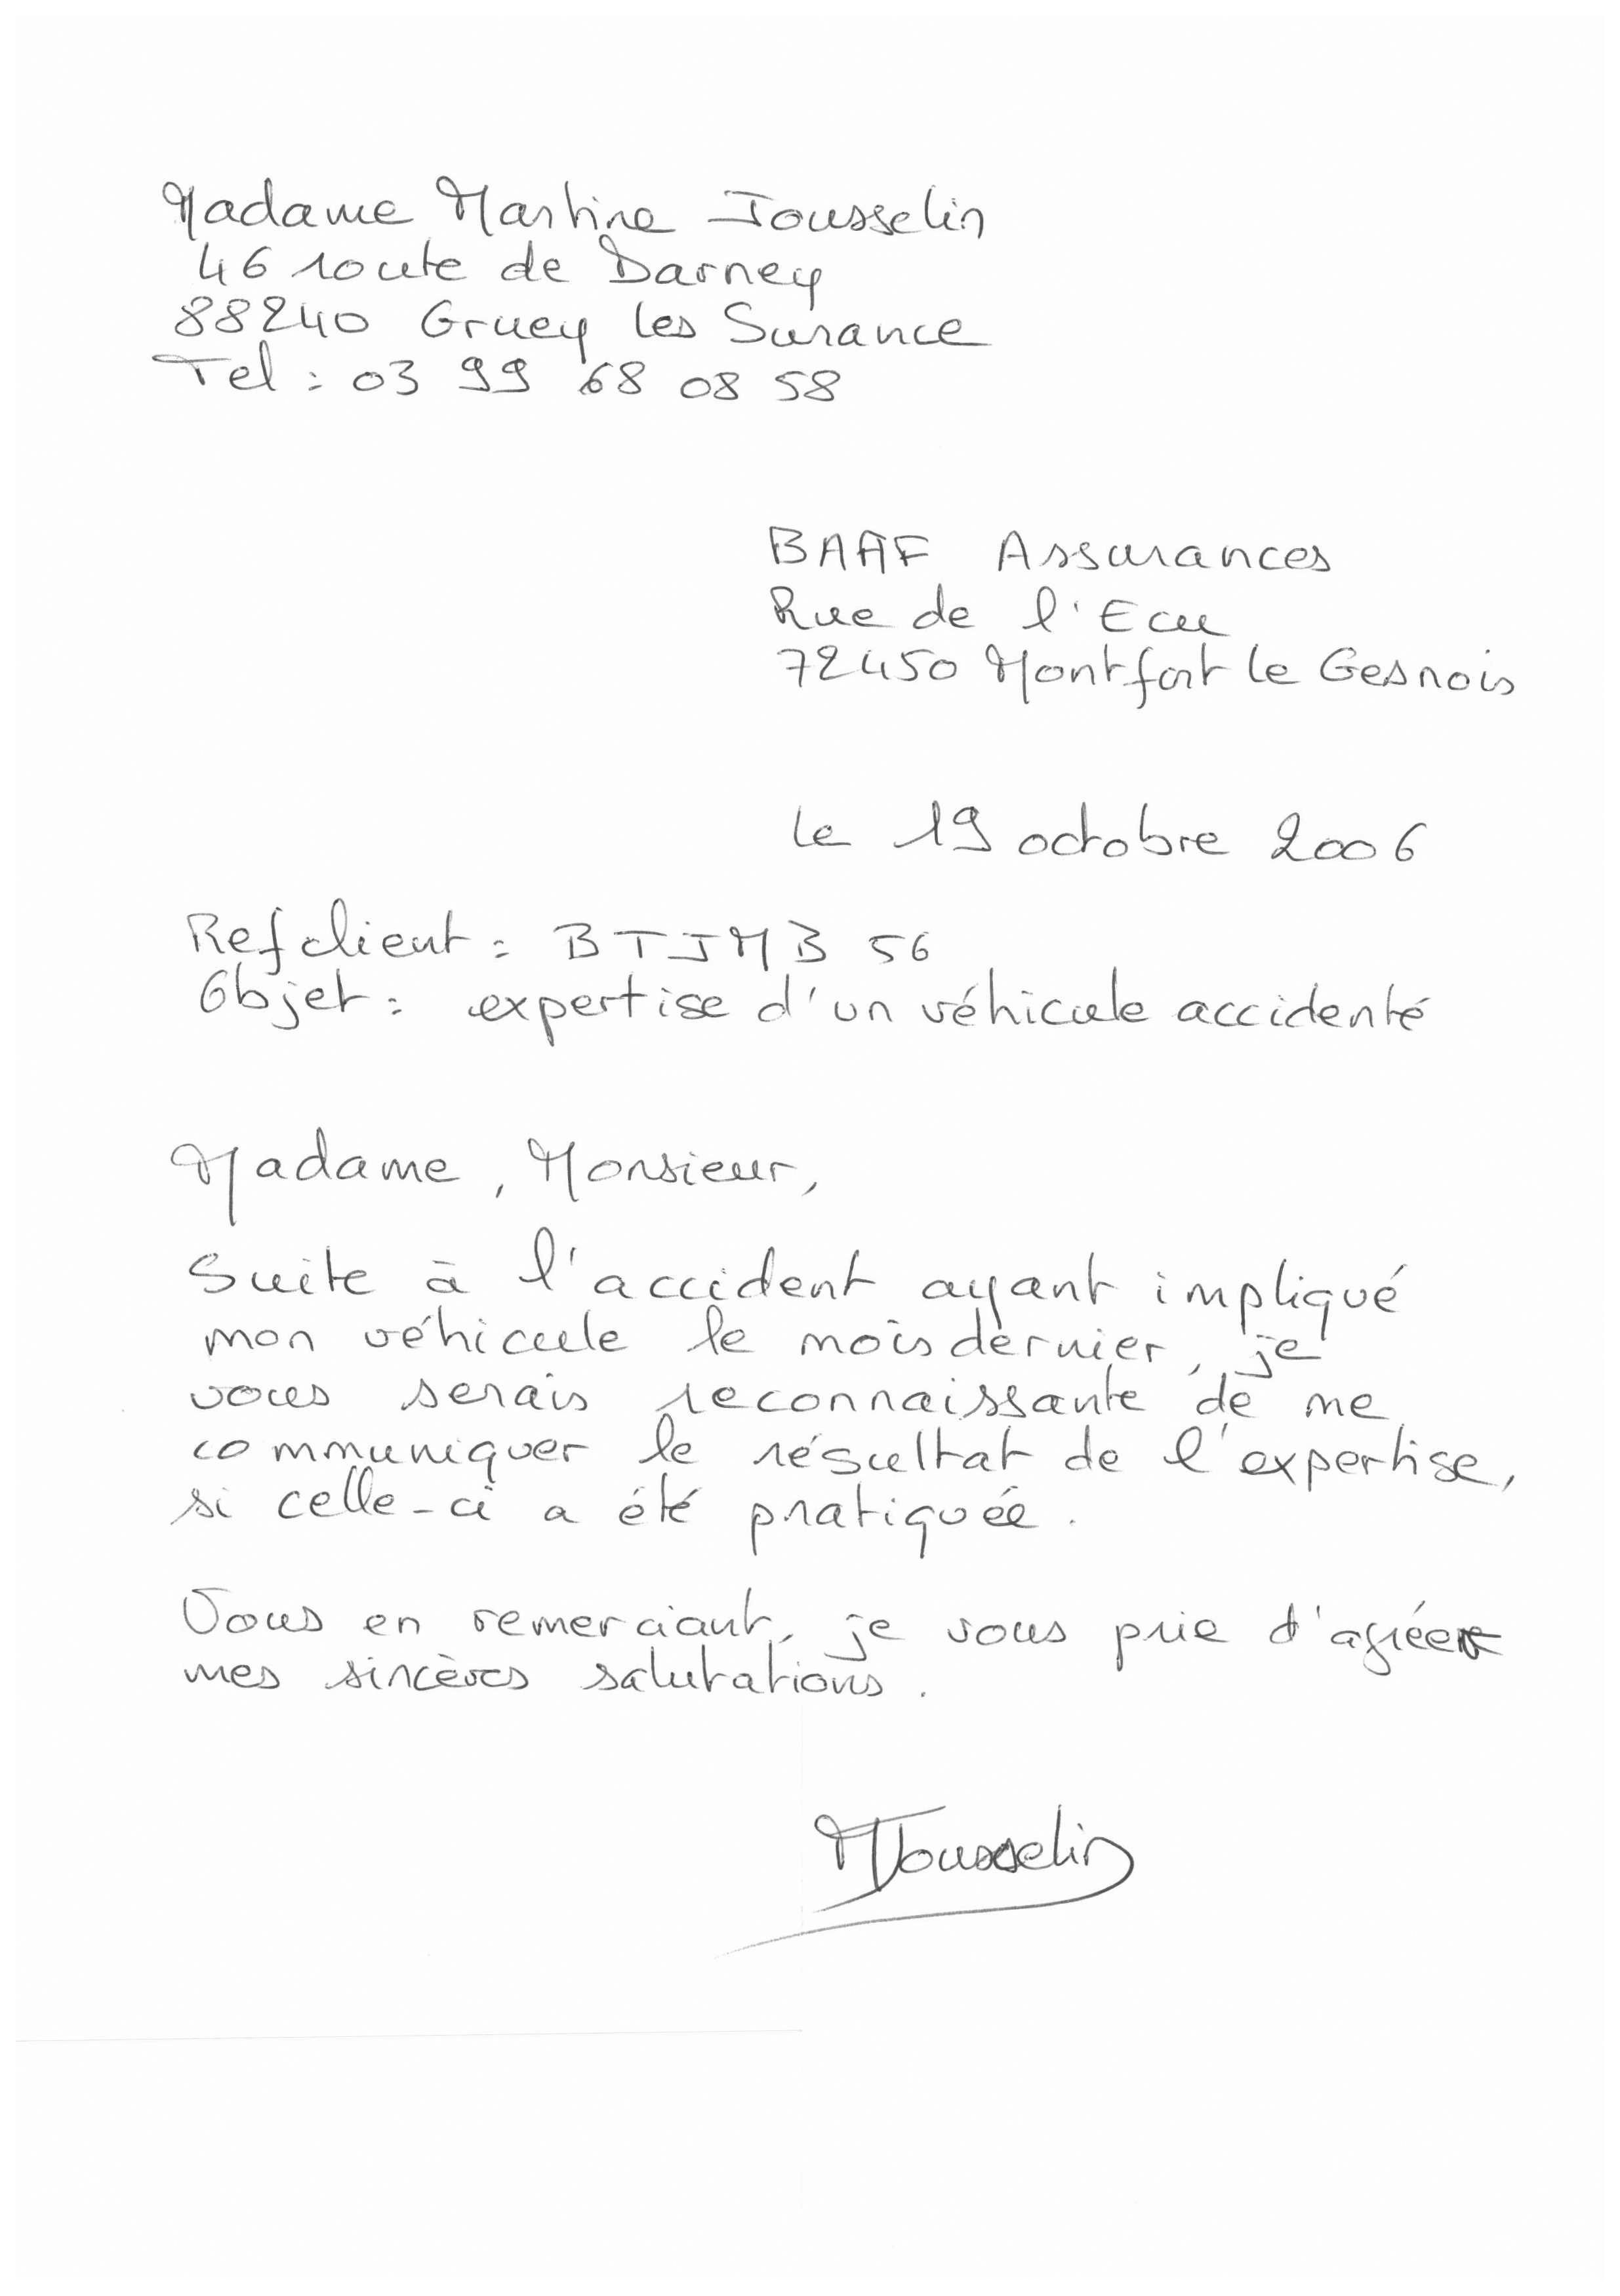 Madame Martine Jousselin
46 route de Darney
88240 Gruey les Surance
Tel : 03 99 68 08 58
BAAF Assurances
Rue de l'Ecu
72450 Montfort le Gesnois
le 19 octobre 2006
Ref client : BTJMB 56
Objet : expertise d'un véhicule accidenté
Madame, Monsieur,
Suite à l'accident ayant impliqué
mon véhicule le mois dernier, je
vous serais reconnaissante de me
communiquer le résultat de l'expertise,
si celle-ci a été pratiquée.
Vous en remerciant, je vous prie d'agréer
mes sincères salutations.
MJousselin